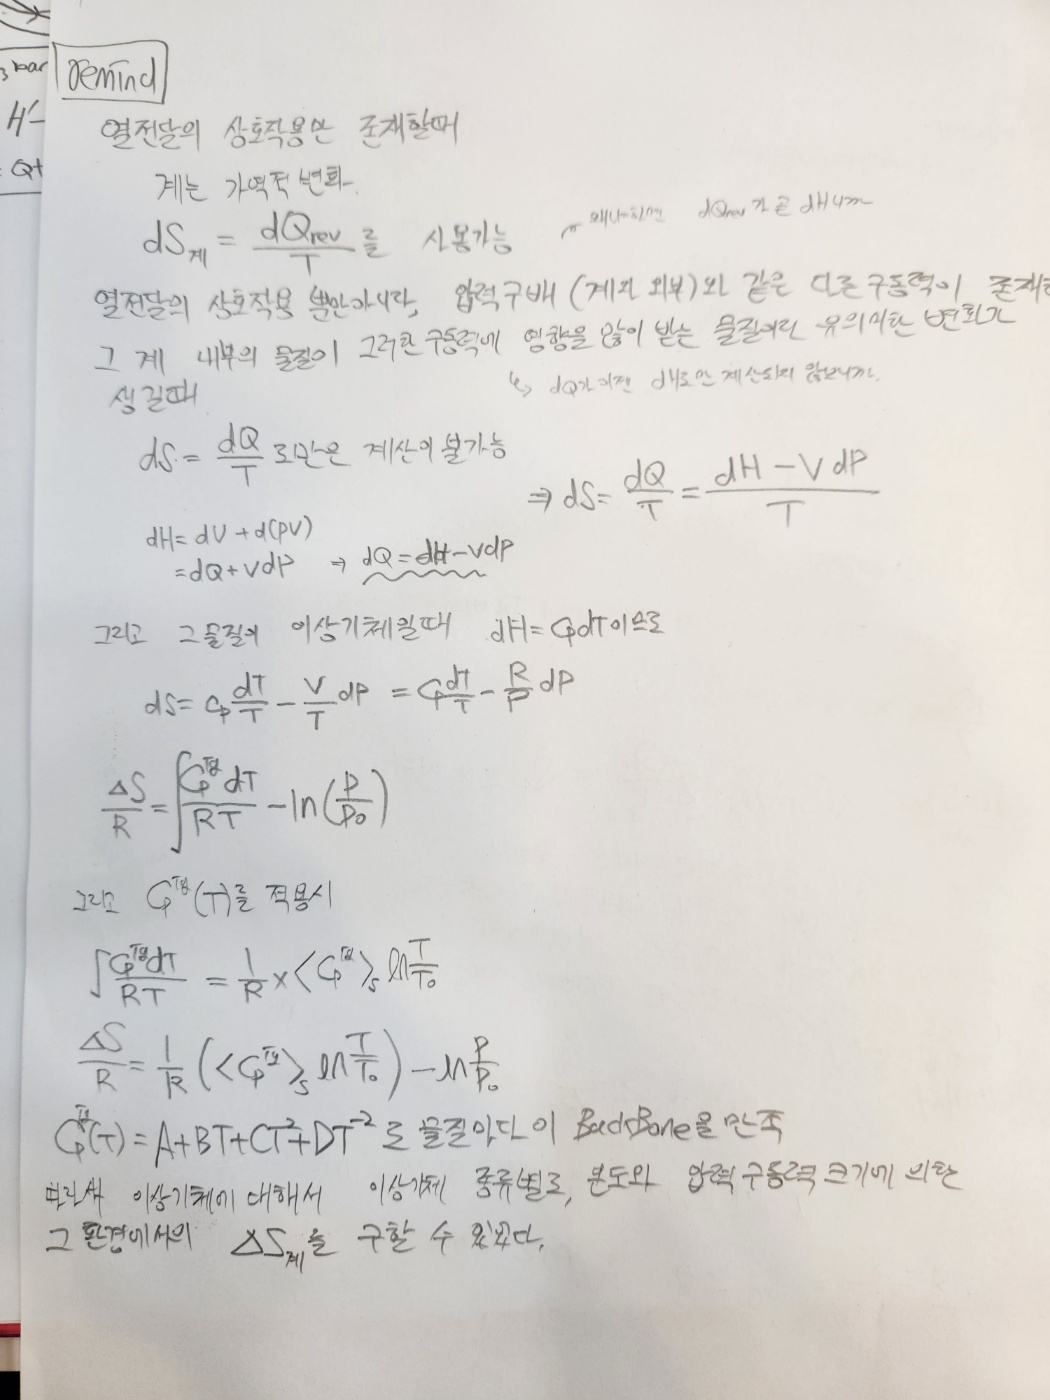 3 bar
H'-
= Q+
remind
열전달의 상호작용만 존재할때
계는 가역적 변화.
dS계 = dQrev/T 를 사용가능
왜냐하면 dQrev가 곧 dH니까
열전달의 상호작용 뿐만아니라, 압력구배 (계와 외부)와 같은 다른 구동력이 존재
그 계 내부의 물질이 그러한 구동력에 영향을 많이 받는 물질이라 유의미한 변화가
생길때
↳ dQ가 이젠 dH로만 계산되지 않으니까.
dS = dQ/T 로만은 계산이 불가능
⇒ dS = dQ/T = (dH - VdP)/T
dH = dU + d(PV)
= dQ + VdP → dQ = dH - VdP
그리고 그 물질이 이상기체일때 dH = CpdT이므로
dS = Cp dT/T - V/T dP = Cp dT/T - R/P dP
ΔS/R = ∫ Cp^ig dT/RT - ln(P/P₀)
그리고 Cp^ig(T)를 적용시
∫ Cp^ig dT/RT = 1/R × <Cp^ig>s ln T/T₀
ΔS/R = 1/R (<Cp^ig>s ln T/T₀) - ln P/P₀
Cp^ig(T) = A+BT+CT²+DT⁻² 로 물질마다 이 BackBone을 만족
따라서 이상기체에 대해서 이상기체 종류별로, 온도와 압력 구동력 크기에 의한
그 환경에서의 ΔS계를 구할 수 있었다.